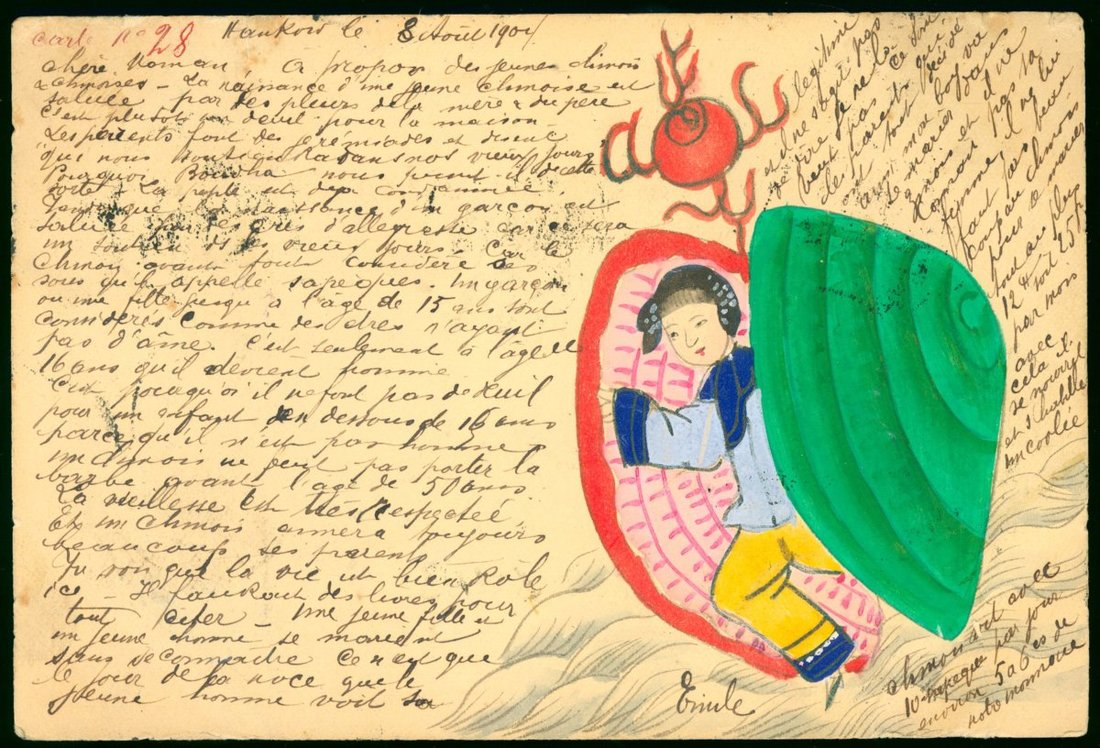 Carte No 28 Hankow le 8 Août 1901
Chère Maman A propos des jeunes chinois
& chinoises - La naissance d'une jeune chinoise est
saluée par des pleurs de la mère & du père
C'est plutôt un deuil pour la maison
Les parents font des jérémiades et disent
qui nous soutiendra dans nos vieux jours
Pourquoi Boudha nous punit-il de cette
sorte. La petite est déjà condamnée
Tandis que la naissance d'un garçon est
saluée par des cris d'allegresse car ce sera
un soutien ds les vieux jours. Car le
Chinois avant tout considère les
sous qu'il appelle sapeques. Un garçon
ou une fille jusqu'a l'âge de 15 ans sont
considérés comme des êtres n'ayant
pas d'âme. C'est seulement à l'âge de
16 ans qu'il devient homme
C'est pourquoi il ne font pas de deuil
pour un enfant en dessous de 16 ans
parce qu'il n'est pas homme
un chinois ne peut pas porter la
barbe avant l'age de 50 ans.
La vieillesse est très respectée
Et un Chinois aimera toujours
beaucoup ses parents
Tu vois que la vie est bien drôle
ici - Il faudrait des livres pour
tout citer - Une jeune fille &
un jeune homme se marient
sans se connaître ce n'est que
le jour de la noce que le
jeune homme voit sa
legitime
et ne sait pas
se
veut pas
les parents qui
ont tout décidé
ainsi mon boy va
se marier il
a mois et
comment pas sa
femme il
faut pas
longtemps un chinois
pour se marier
tout au plus
12 # soit 25 f
par mois
avec
cela il
se nourrit
et s'habille
un coolie
chinois vit avec
10 sapeques par jour
environ 5 a 6 cs de
notre monnaie
Emile